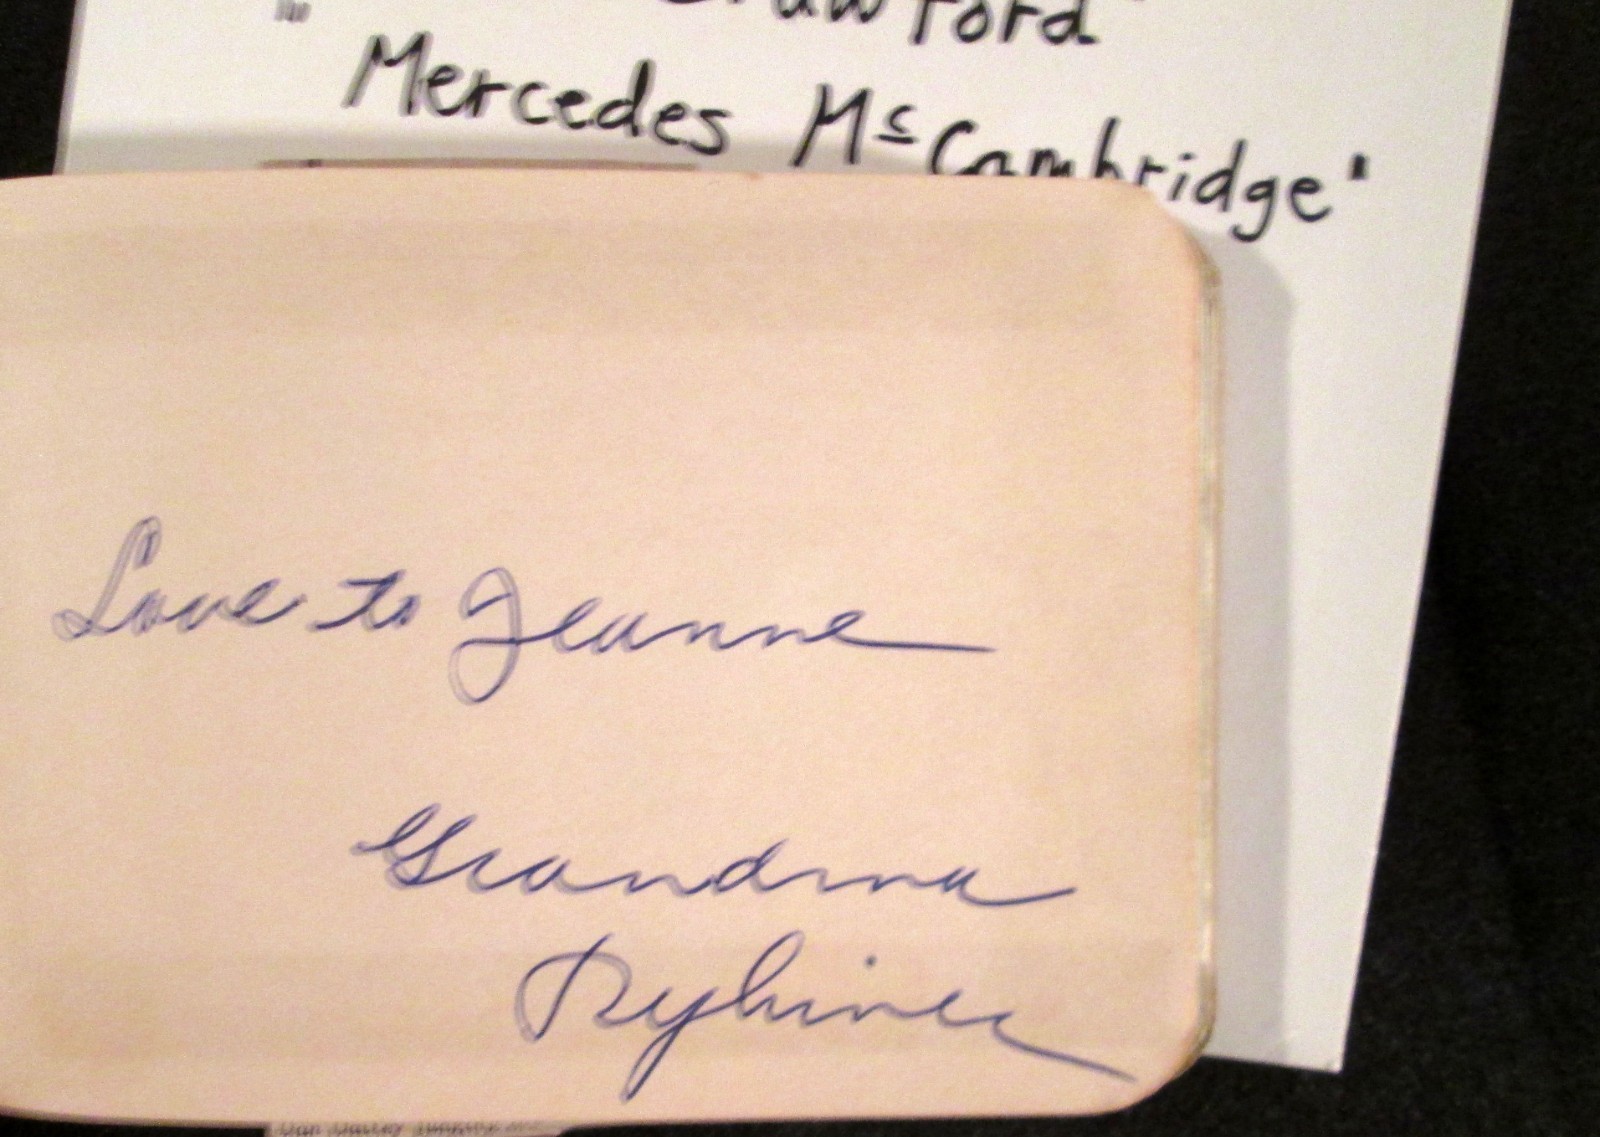 Crawford"
Mercedes McCambridge"
Love to Jeanne
Grandma
Ryhiner